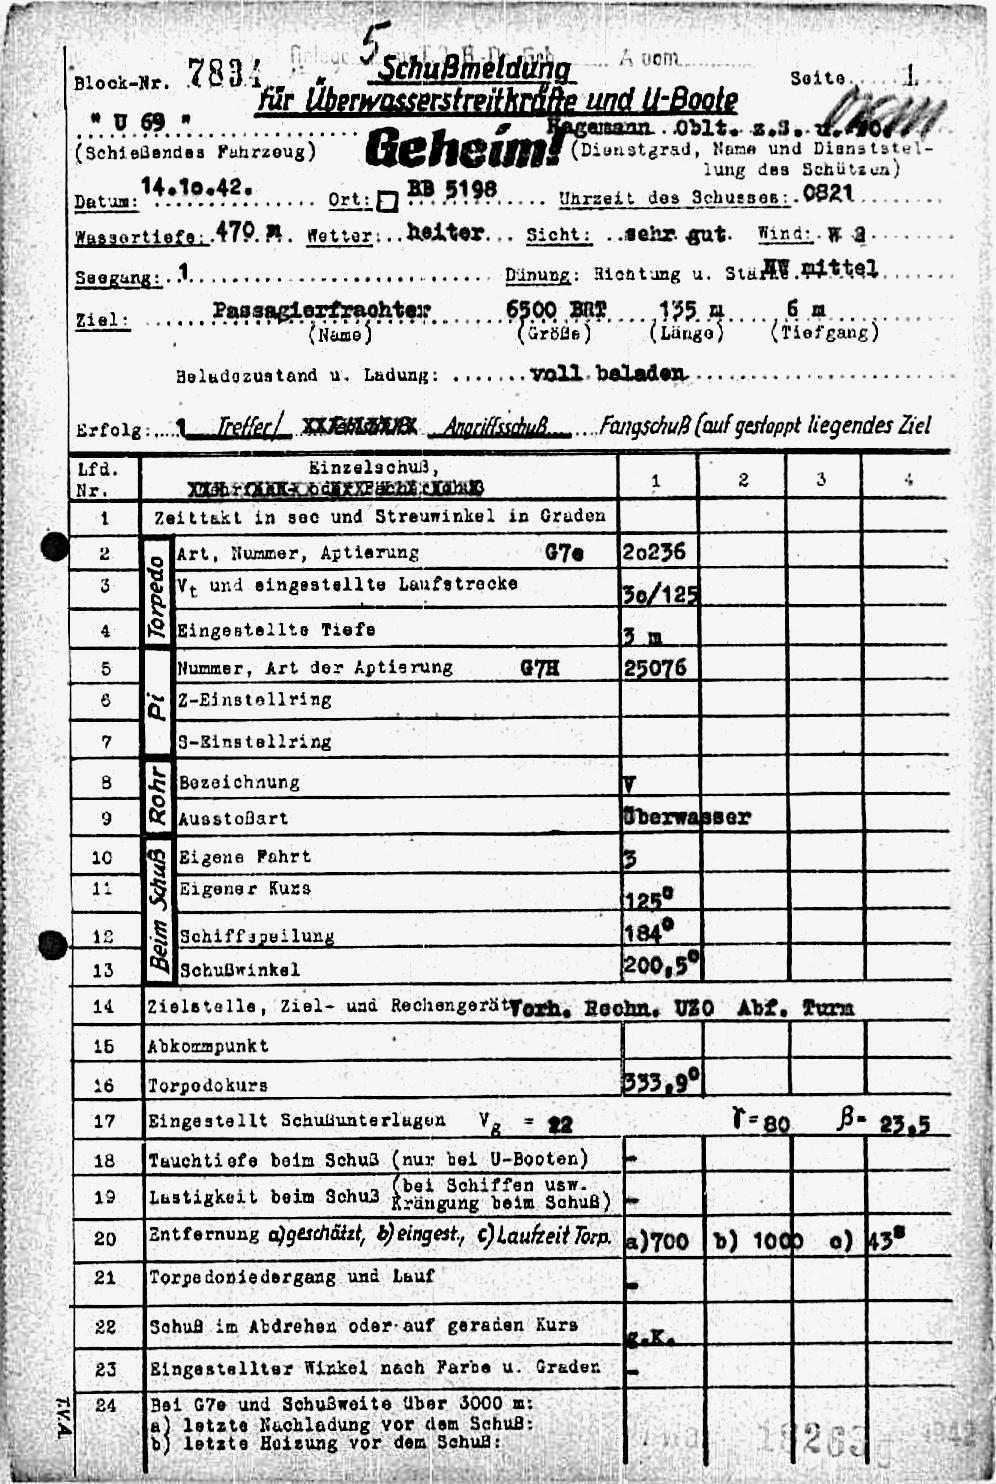 5
Block-Nr. 7834
Schußmeldung
Seite 1
für Überwasserstreitkräfte und U-Boote
" U 69 "
Hagemann Oblt. z.S. u.
(Schießendes Fahrzeug)
Geheim!
(Dienstgrad, Name und Dienststel-
lung des Schützen)
Datum: 14.10.42. Ort: BB 5198 Uhrzeit des Schusses: 0821
Wassertiefe: 470 m Wetter: heiter Sicht: sehr gut. Wind: W 2
Seegang: 1 Dünung: Richtung u. Stärke NW mittel
Ziel: Passagierfrachter 6500 BRT 135 m 6 m
(Name) (Größe) (Länge) (Tiefgang)
Beladezustand u. Ladung: voll beladen
Erfolg: 1 Treffer/ Angriffsschuß Fangschuß (auf gestoppt liegendes Ziel
Lfd. Nr. Einzelschuß, 1 2 3 4
1 Zeittakt in sec und Streuwinkel in Graden
Torpedo
2 Art, Nummer, Aptierung G7e 20236
3 Vt und eingestellte Laufstrecke 30/125
4 Eingestellte Tiefe 3 m
Pi
5 Nummer, Art der Aptierung G7H 25076
6 Z-Einstellring
7 S-Einstellring
Rohr
8 Bezeichnung V
9 Ausstoßart Überwasser
Beim Schuß
10 Eigene Fahrt 3
11 Eigener Kurs 125°
12 Schiffspeilung 184°
13 Schußwinkel 200,5°
14 Zielstelle, Ziel- und Rechengerät Vorh. Rechn. UZO Abf. Turm
15 Abkommpunkt
16 Torpedokurs 333,9°
17 Eingestellt Schußunterlagen Vg = 22 γ=80 β= 23,5
18 Tauchtiefe beim Schuß (nur bei U-Booten) -
19 Lastigkeit beim Schuß (bei Schiffen usw. Krängung beim Schuß) -
20 Entfernung a)geschätzt, b)eingest., c)Laufzeit Torp. a)700 b) 1000 c) 43s
21 Torpedoniedergang und Lauf -
22 Schuß im Abdrehen oder auf geraden Kurs g.K.
23 Eingestellter Winkel nach Farbe u. Graden -
24 Bei G7e und Schußweite über 3000 m:
a) letzte Nachladung vor dem Schuß:
b) letzte Heizung vor dem Schuß:
T.V.A.
18263 1942